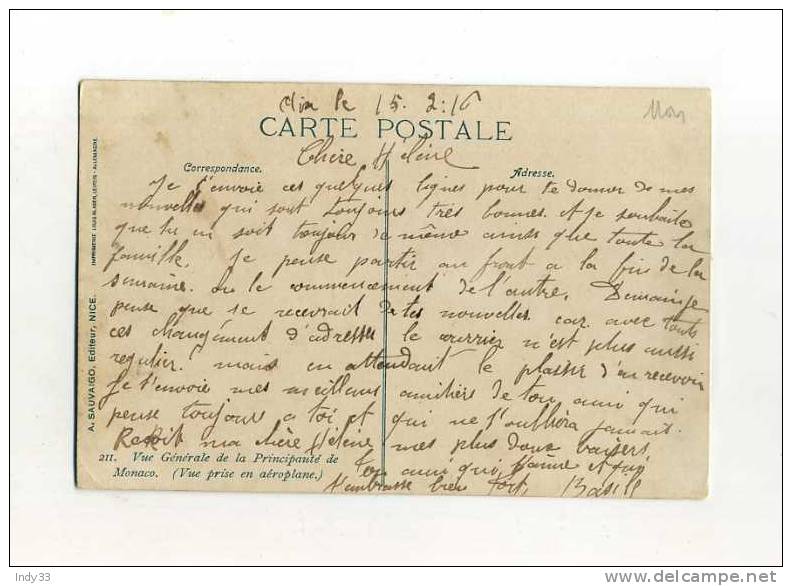 le 15. 2. 16
CARTE POSTALE
Correspondance.
Adresse.
Chère Hélène
Je t'envoie ces quelques lignes pour te donner de mes
nouvelles qui sont toujours très bonnes. et je souhaite
que tu soit toujour de même ainsi que toute la
famille. Je pense partir au front a la fin de la
semaine. ou le commencement de l'autre. Demain je
pense que je recevrait de tes nouvelles car avec touts
ces changement d'adresse le courrier n'est plus aussi
regulier. mais en attendant le plaisir d'en recevoir
Je t'envoie mes meilleurs amitiées de ton ami qui
pense toujours a toi et qui ne t'oubliera jamait.
Resoit ma chère Hélène mes plus doux baisers
Ton ami qui t'aime et qui
t'embrasse bien fort. Basile
211. Vue Générale de la Principauté de
Monaco. (Vue prise en aéroplane.)
A. SAUVAIGO, Editeur, NICE.
Indy33
delcampe.net